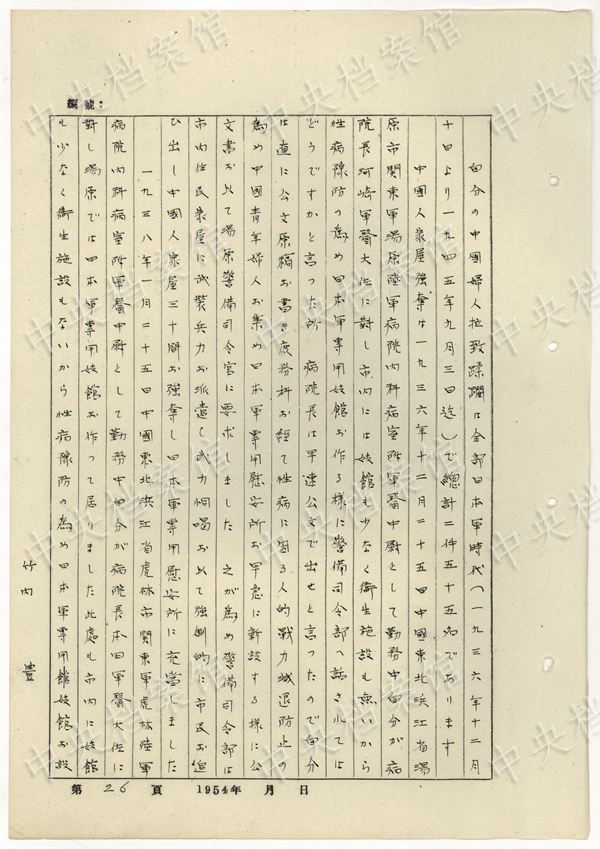 編號：
自分の中國婦人拉致蹂躙は全部日本軍時代（一九三六年十二月
十日より一九四五年九月三日迄）で總計二件五十五名であります
中國人家屋强奪は一九三六年十二月二十五日中國東北浜江省湯
原市関東軍湯原陸軍病院内科病室附軍醫中尉として勤務中自分が病
院長河崎軍醫大佐に対し市内には妓館も少なく衛生施設も無いから
性病豫防の為め日本軍專用妓館お作る様に警備司令部へ話されては
どうですかと言った所　病院長は早速公文で出せと言ったので自分
は直に公文原稿お書き庶務科お経て性病に因る人的戰力減退防止の
為め中國青年婦人お集め日本軍專用慰安所お早急に新設する様に公
文書お以て湯原警備司令官に要求しました　之が為め警備司令部は
市内住民家屋に武装兵力お派遣し武力恫喝お以て强制的に市民お追
ひ出し中國人家屋三十間お强奪し日本軍專用慰安所に充當しました
一九三八年一月二十五日中國東北浜江省虎林市関東軍虎林陸軍
病院内科病室附軍醫中尉として勤務中自分が病院長本田軍醫大佐に
對し湯原では日本軍專用妓館お作って居りました此處も市内に妓館
も少なく衛生施設もないから性病豫防の為め日本軍專用妓館お設
竹内　豊
第 26 頁　1954年　月　日
中央档案馆